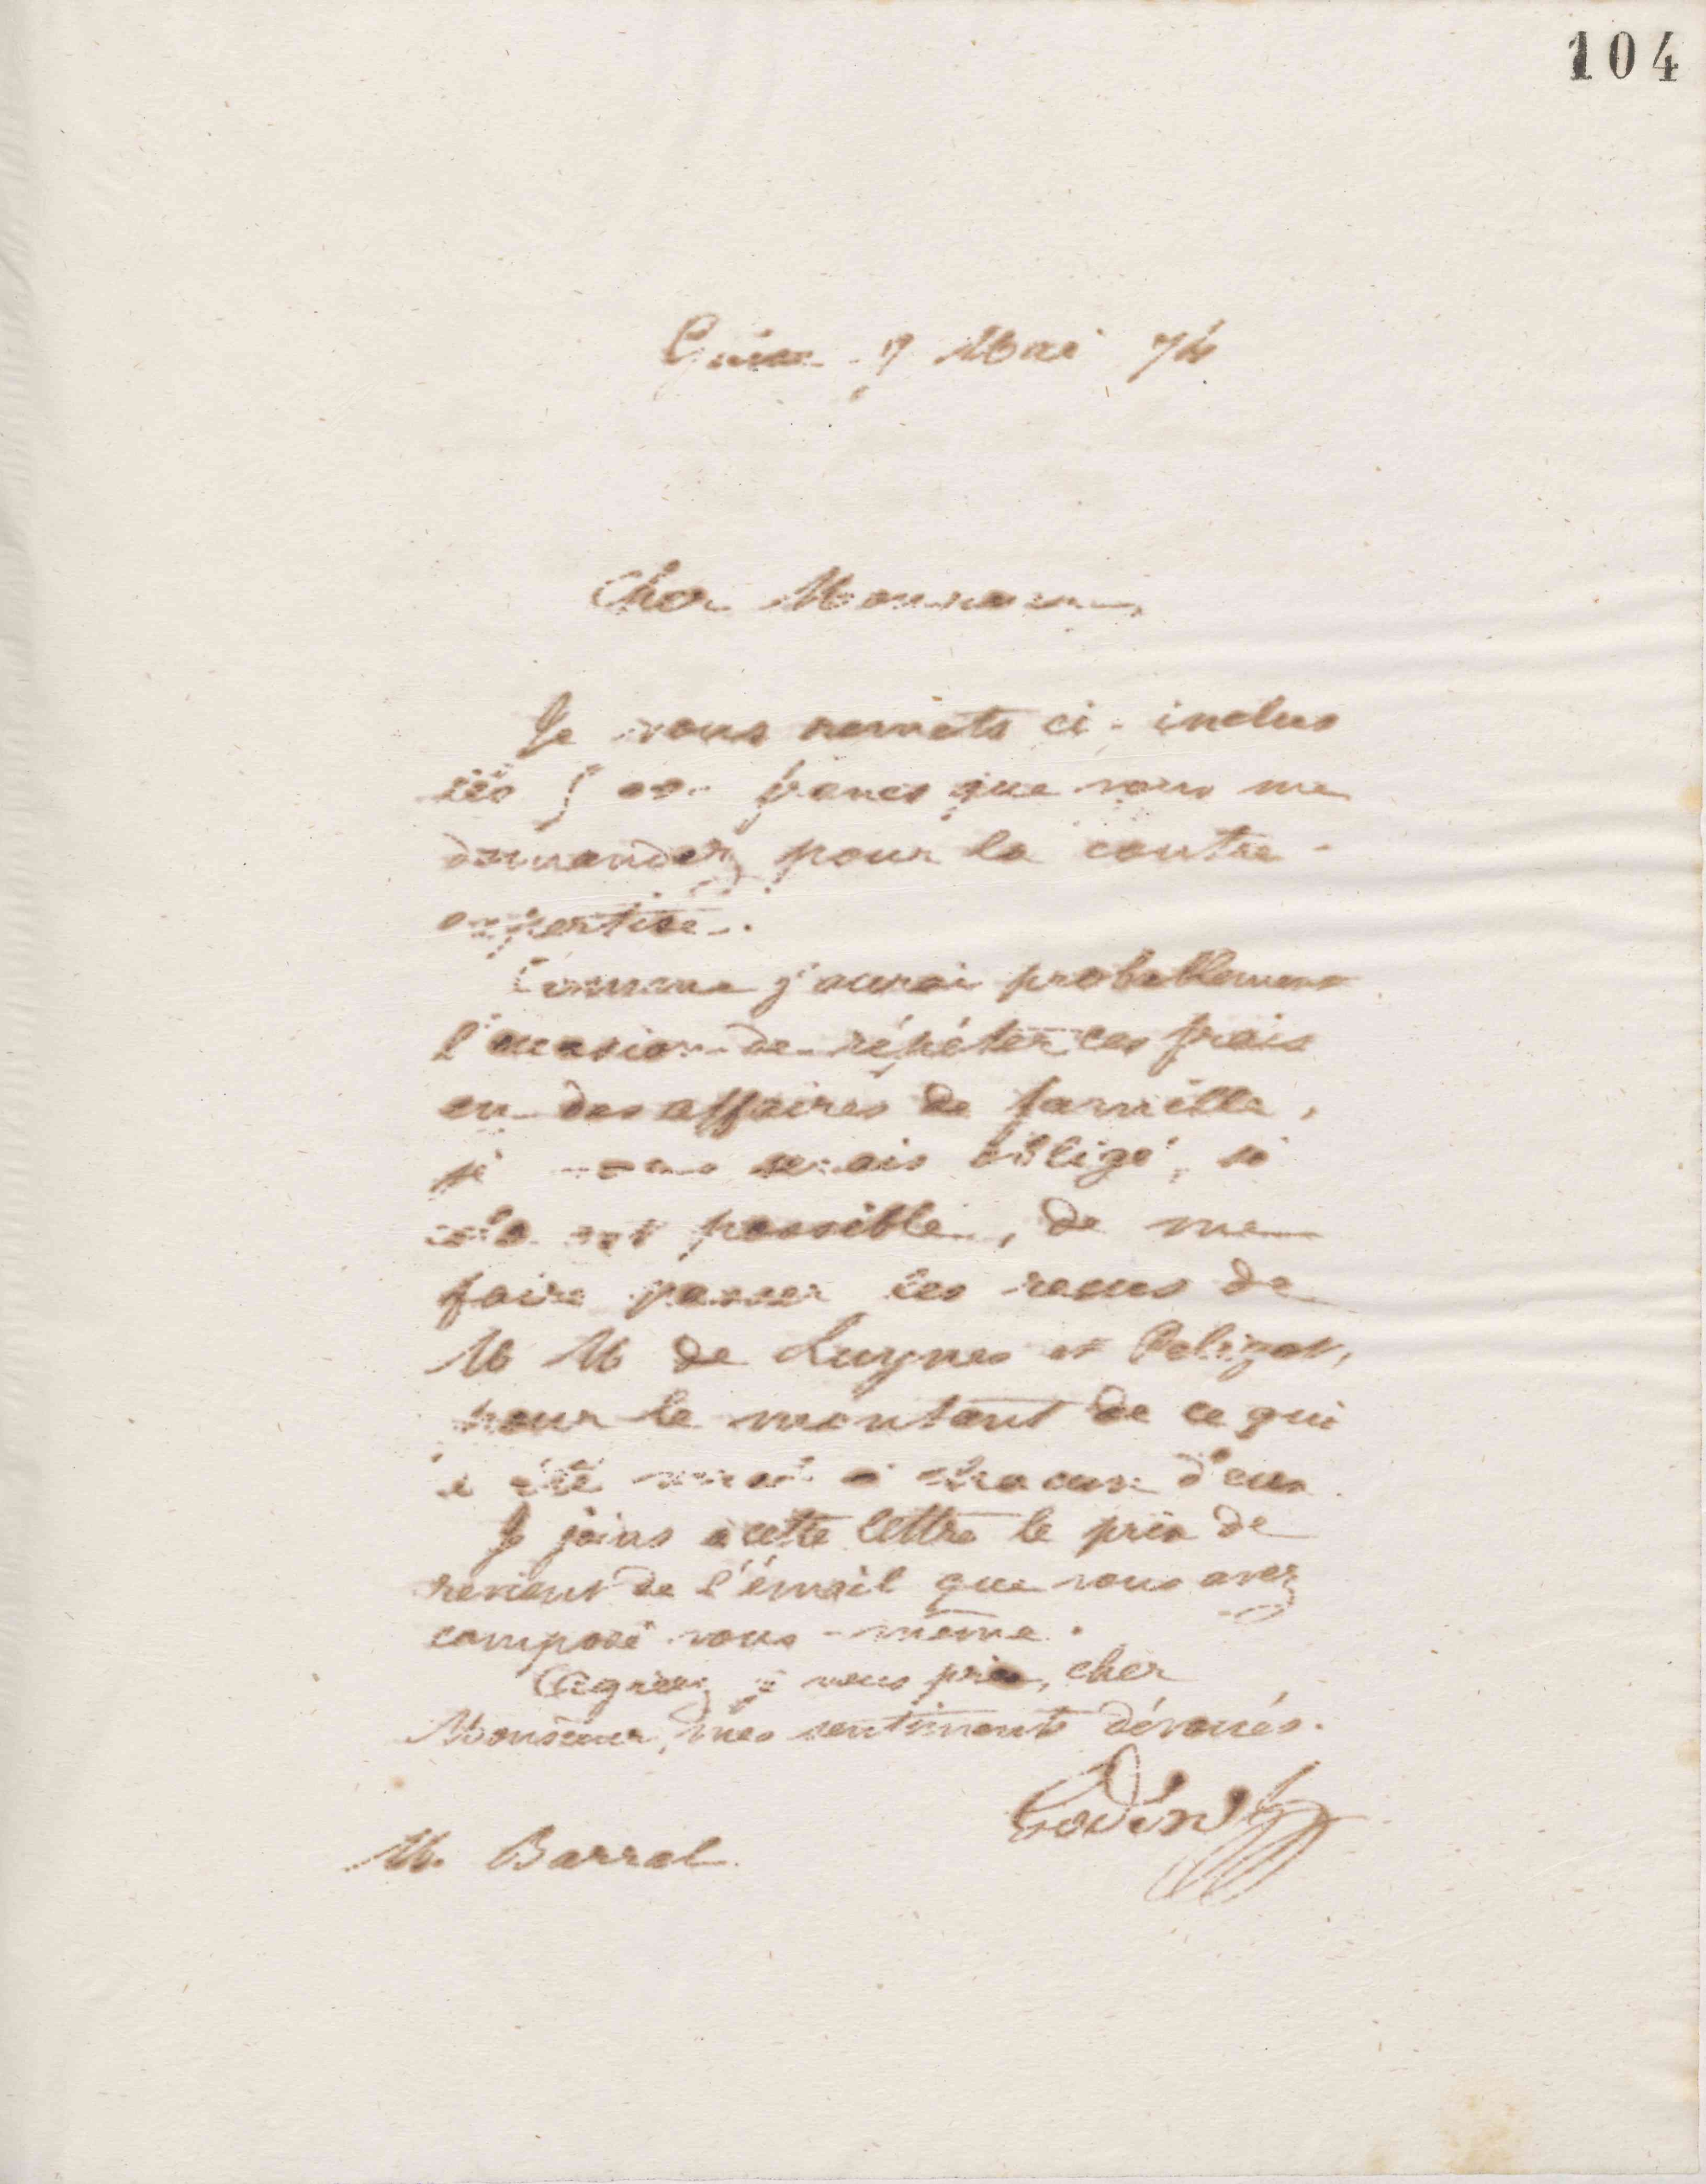 104
Guise 9 Mai 74
Cher Monsieur,
Je vous remets ci-inclus
les 500 francs que vous me
demandez pour la contre-
expertise.
Comme j'aurai probablement
l'occasion de répéter ces frais
en des affaires de famille,
je vous serais obligé, si
cela est possible, de me
faire passer les reçus de
MM de Luynes et Peligot,
pour le montant de ce qui
a été versé à chacun d'eux.
Je joins à cette lettre le prix de
revient de l'émail que vous avez
composé vous-même.
Agréez je vous prie, cher
Monsieur, mes sentiments dévoués.
Godin
M. Barral